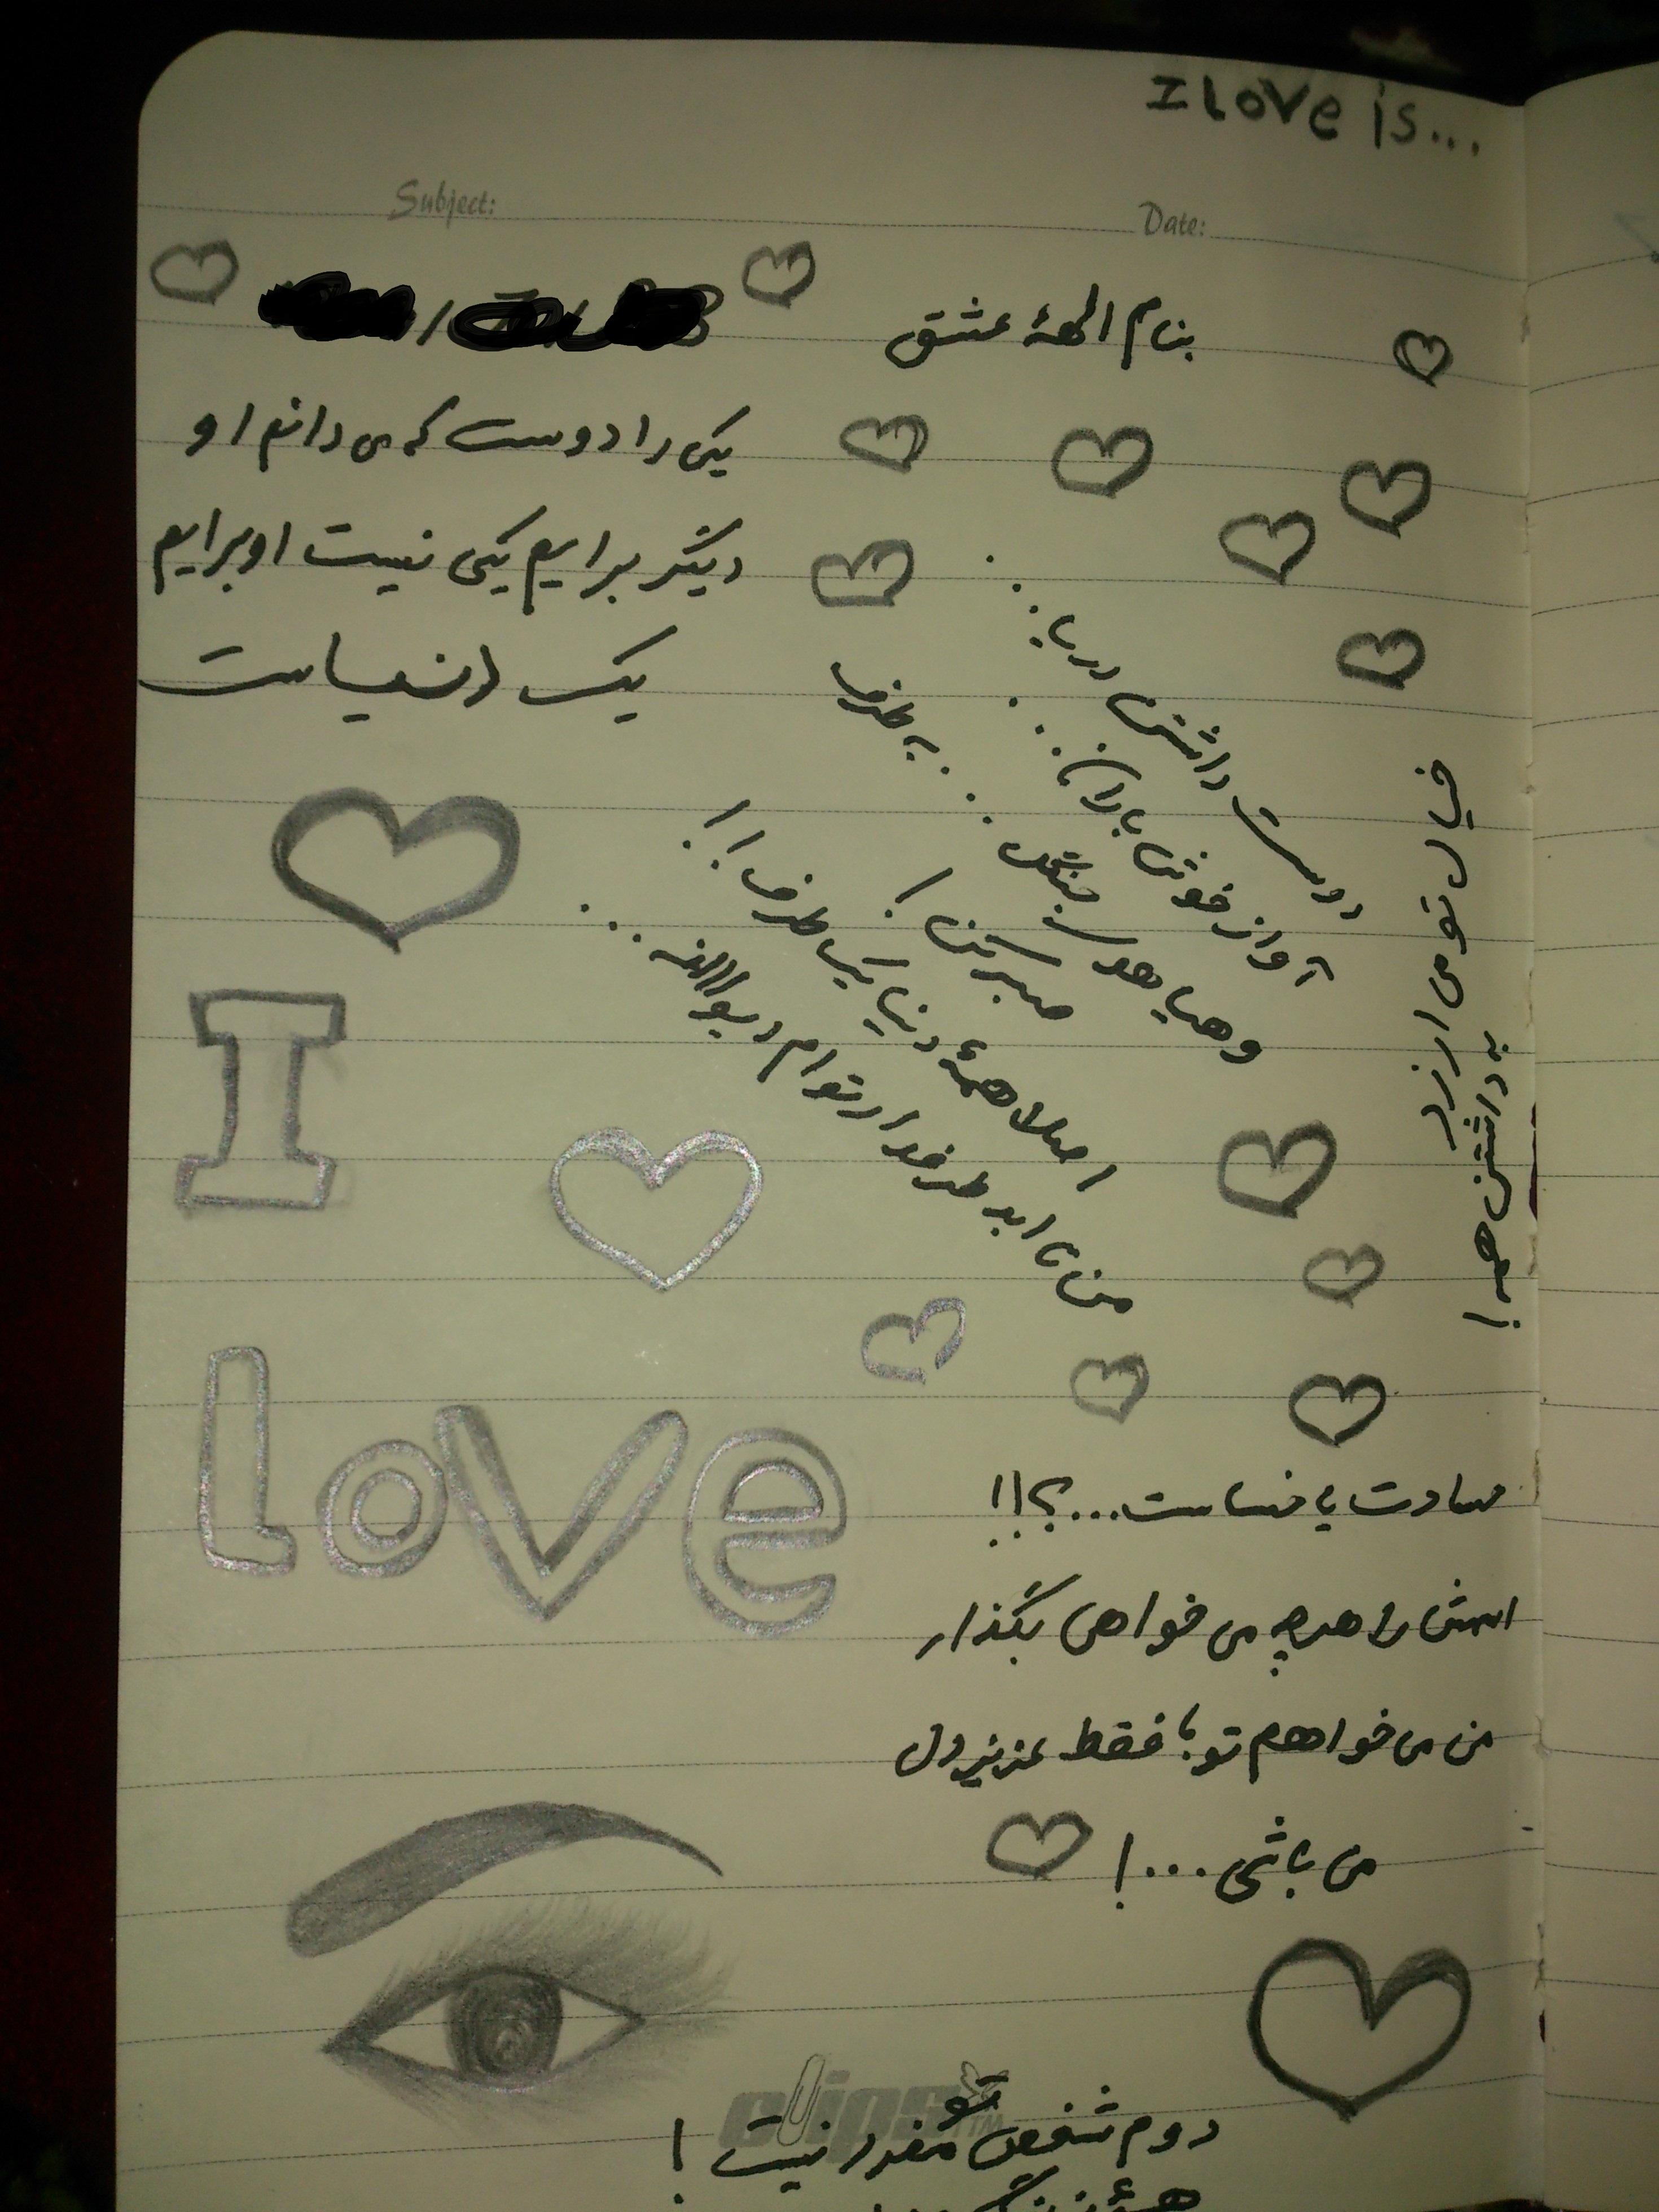 I Love is...
Subject:
Date:
بنام الههٔ عشق
یکی را دوست که می دانم او
دیگر برایم یکی نیست او برایم
یک دنیاست
دوست داشتن دریا...
آواز خوش باران...
و هیاهو جنگل.. به طرف
صبر کن!
اصلا همهٔ دنیا یک طرف!!
من تا ابد طرفدار توام دیوااانه...
خیال تو می ارزد
به داشتن همه!
I
Love
حسادت یا خساست...؟!!
اسمش را هرچه می خواهی بگذار
من می خواهم تو فقط عزیز دل
من باشی...!
clips TM
تو
دوم شخص مفرد نیست!